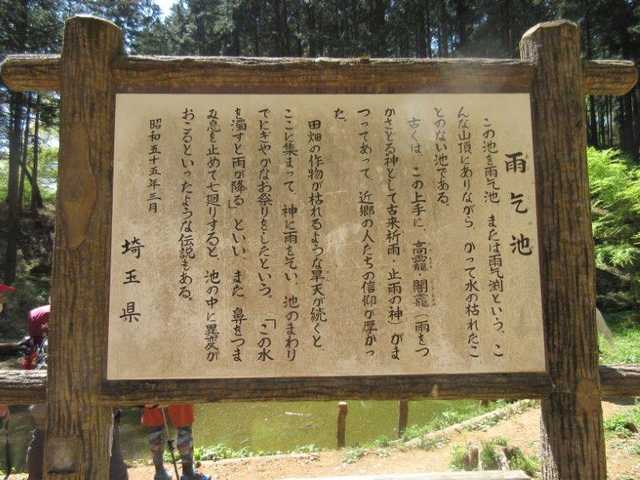 雨乞池
この池を雨乞池、または雨乞渕という。こ
んな山頂にありながら、かって水の枯れたこ
とのない池である。
古くは、この上手に、高龗・闇龗(雨をつ
かさどる神として古来祈雨・止雨の神)がま
つってあって、近郷の人たちの信仰が厚かっ
た。
田畑の作物が枯れるような旱天が続くと、
ここに集まって、神に雨を乞い、池のまわり
でにぎやかなお祭りをしたという。「この水
を濁すと雨が降る」といい、また、鼻をつま
み息を止めて七廻りすると、池の中に異変が
おこるといったような伝説もある。
昭和五十五年三月
埼玉県